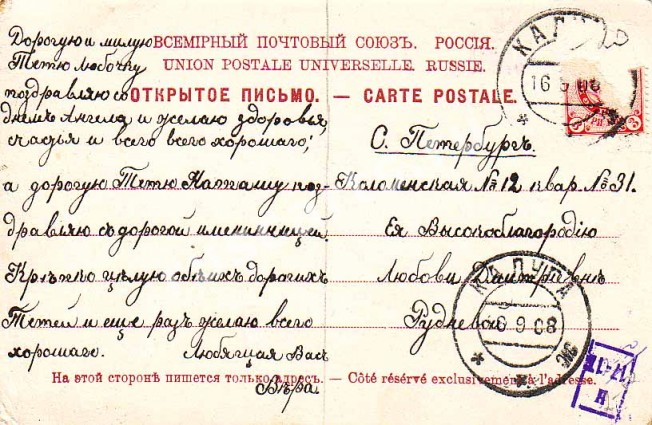 Дорогую и милую
Тетю Любочку
поздравляю со
днемъ Ангела и желаю здоровья,
счастья и всего всего хорошаго;
а дорогую Тетю Наташу поз-
дравляю съ дорогой именинницей.
Крѣпко цѣлую обѣихъ дорогихъ
Тетей и еще разъ желаю всего
хорошаго. Любящая Васъ
Вѣра.
ВСЕМІРНЫЙ ПОЧТОВЫЙ СОЮЗЪ. РОССІЯ.
UNION POSTALE UNIVERSELLE. RUSSIE.
ОТКРЫТОЕ ПИСЬМО. — CARTE POSTALE.
С. Петербургъ.
Коломенская № 12 квар. № 31.
Ея Высокоблагородію
Любови Дмитріевнѣ
Рудневой
КАЛУГА
16 9 08
КАЛУГА
16 9 08
На этой сторонѣ пишется только адресъ. — Côté réservé exclusivement à l'adresse.